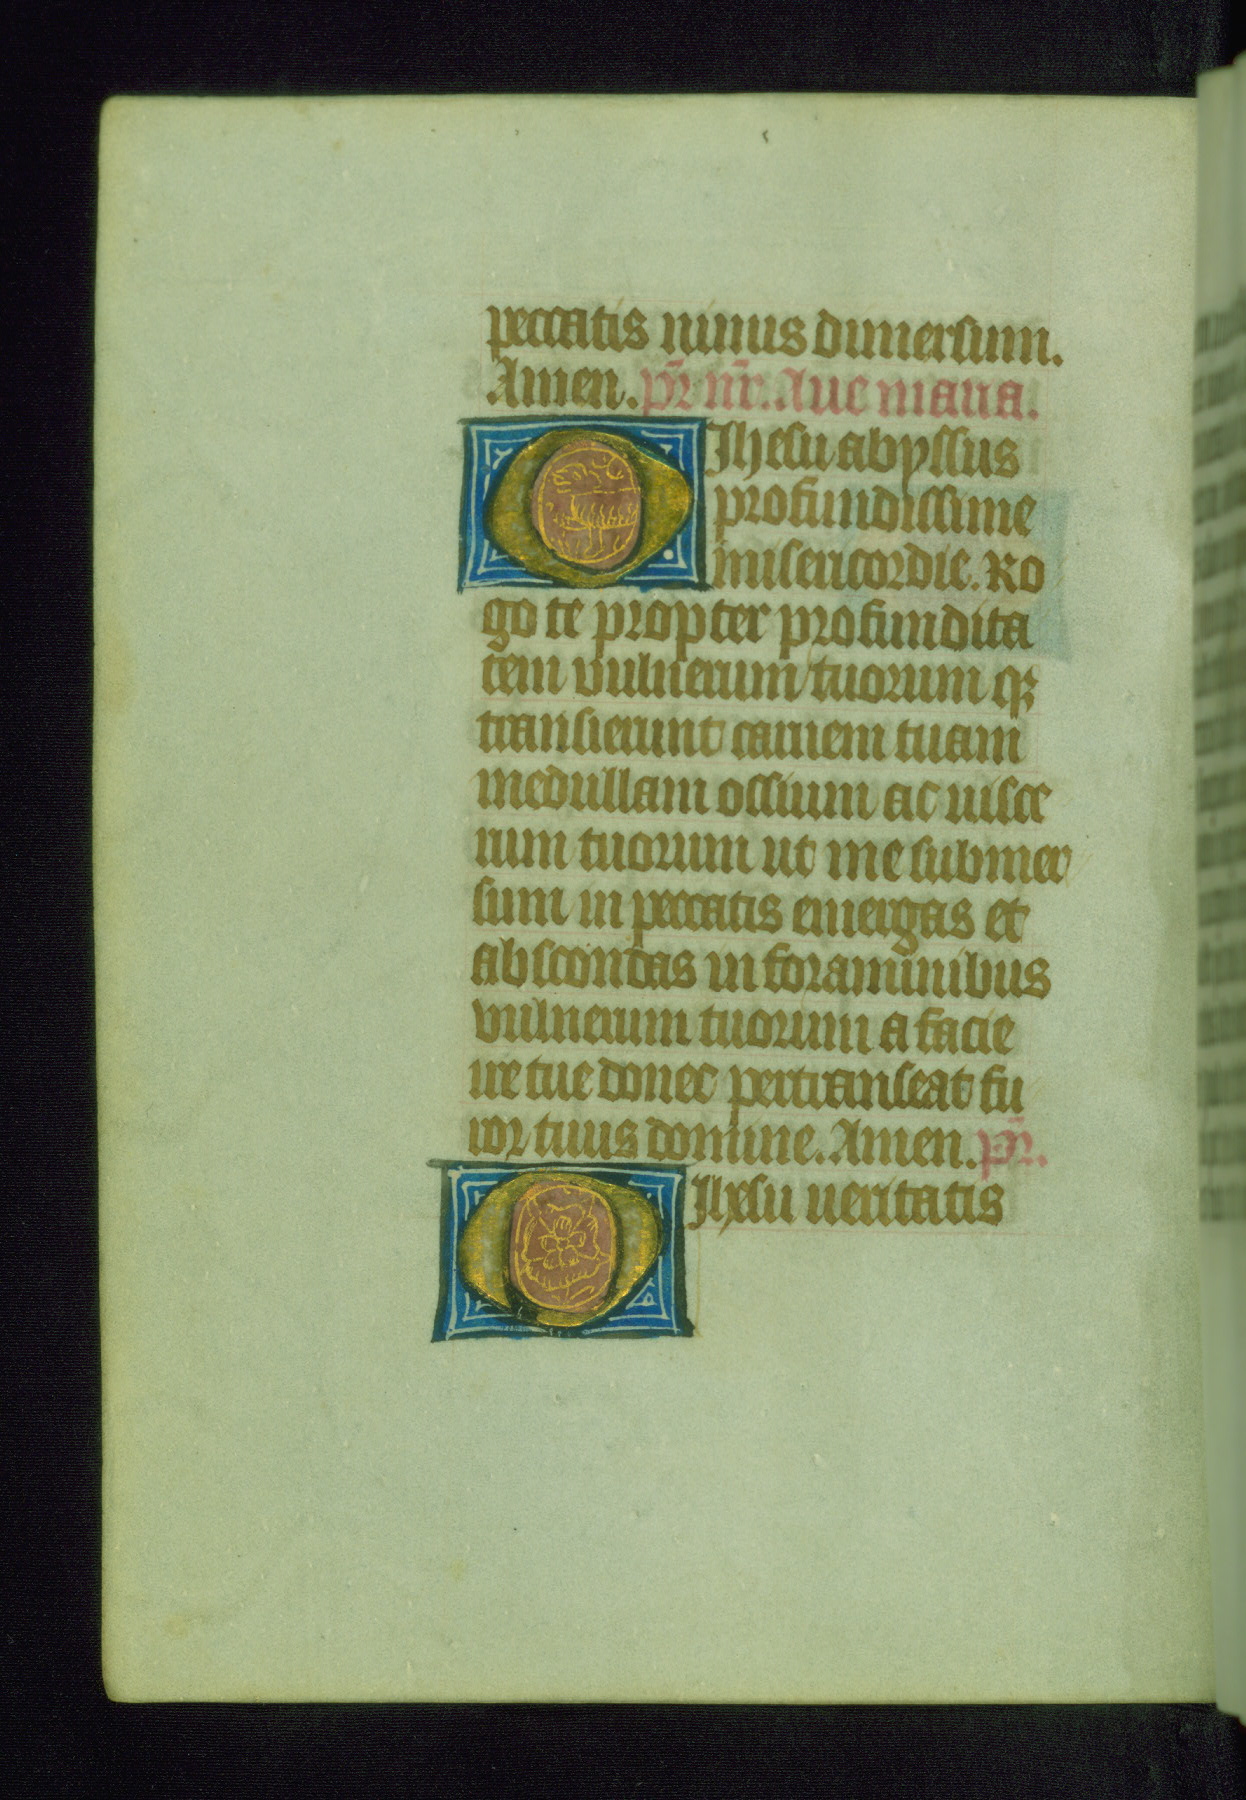 peccatis nimis dimersum.
Amen. pr̄ nr̄. Aue maria.
O Jhesu abyssus
profundissime
misericordie. Ro
go te propter profundita
tem vulnerum tuorum q̄
transierunt carnem tuam
medullam ossium ac visce
rum tuorum ut me submer
sum in peccatis emergas et
abscondas in foraminibus
vulnerum tuorum a facie
ire tue donec pertranseat fu
ror tuus domine. Amen. pr̄.
O Jhesu veritatis